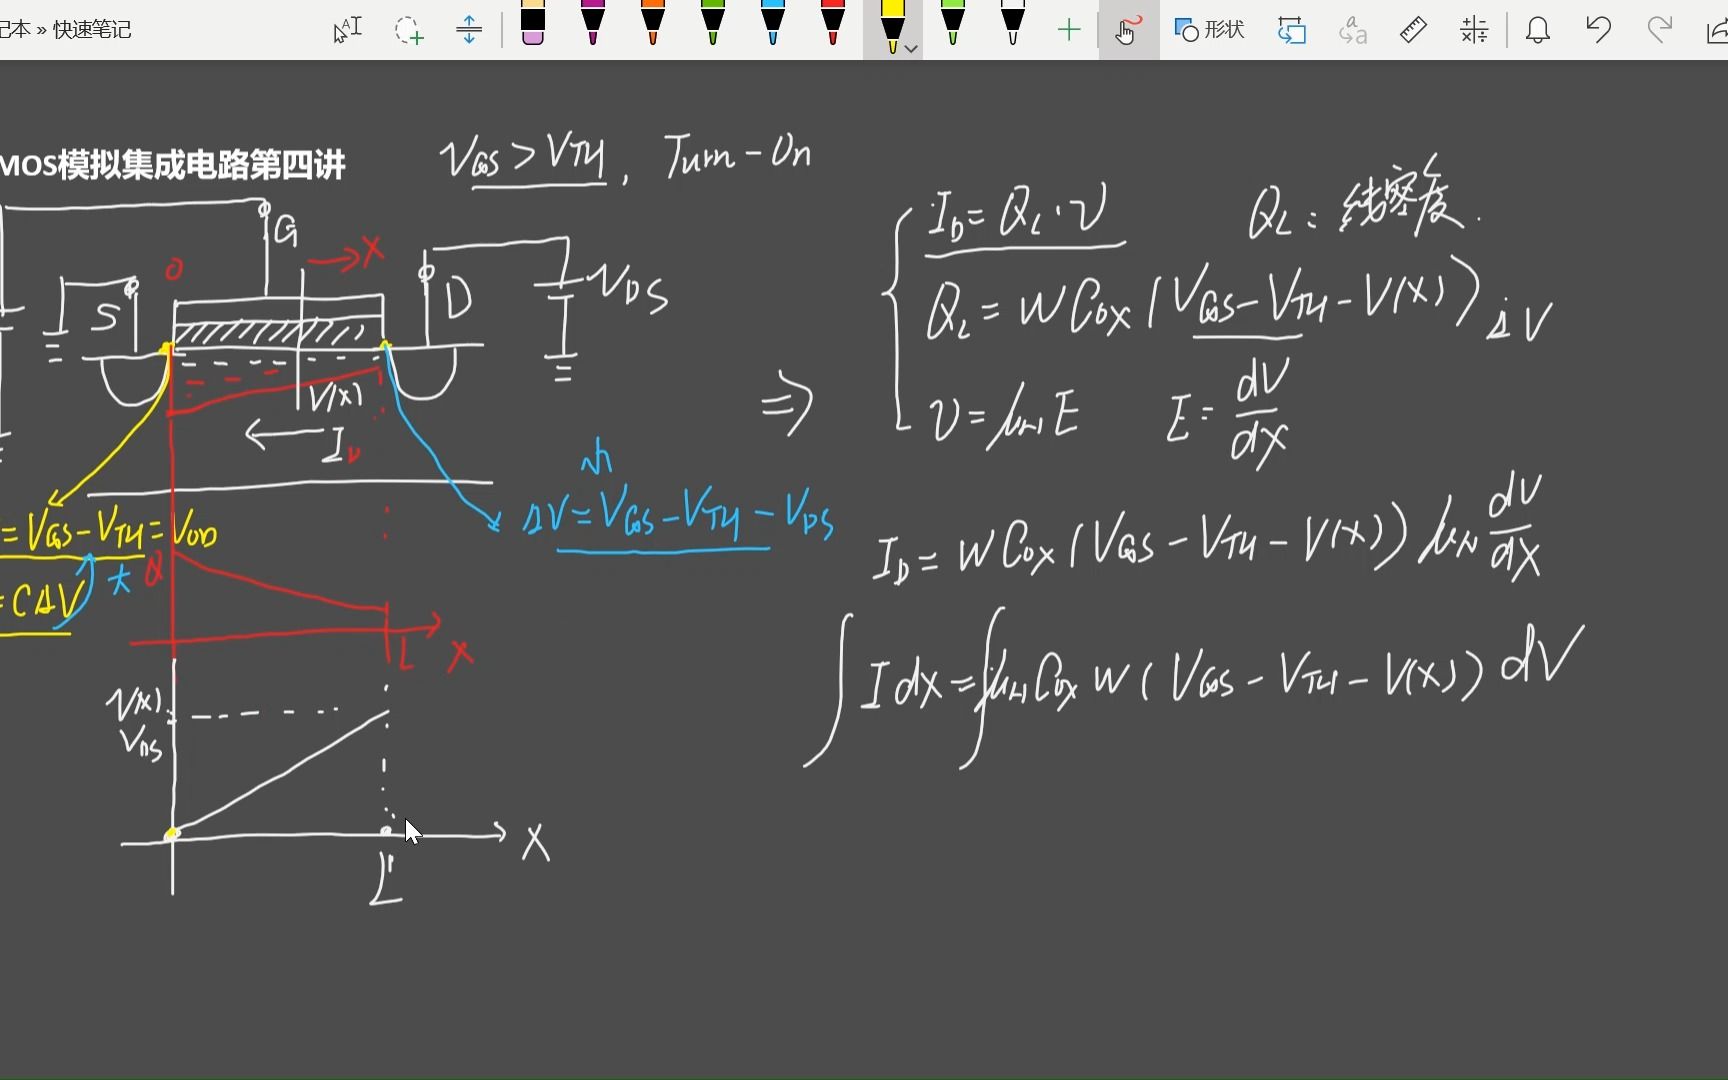 记本 » 快速笔记
形状
MOS模拟集成电路第四讲
V_GS > V_TH , Turn-On
G
O
X
S
D
V_DS
V(x)
I_D
= V_GS - V_TH = V_OD
= CΔV
小
ΔV = V_GS - V_TH - V_DS
大
Q
L
X
V(x)
V_DS
X
L
⇒
I_D = Q_L · v
Q_L : 线密度.
Q_L = W Cox (V_GS - V_TH - V(x)) ΔV
v = μ_n E
E = dV/dx
I_D = W Cox (V_GS - V_TH - V(x)) μ_N dV/dx
∫ I dx = ∫ μ_n Cox W (V_GS - V_TH - V(x)) dV